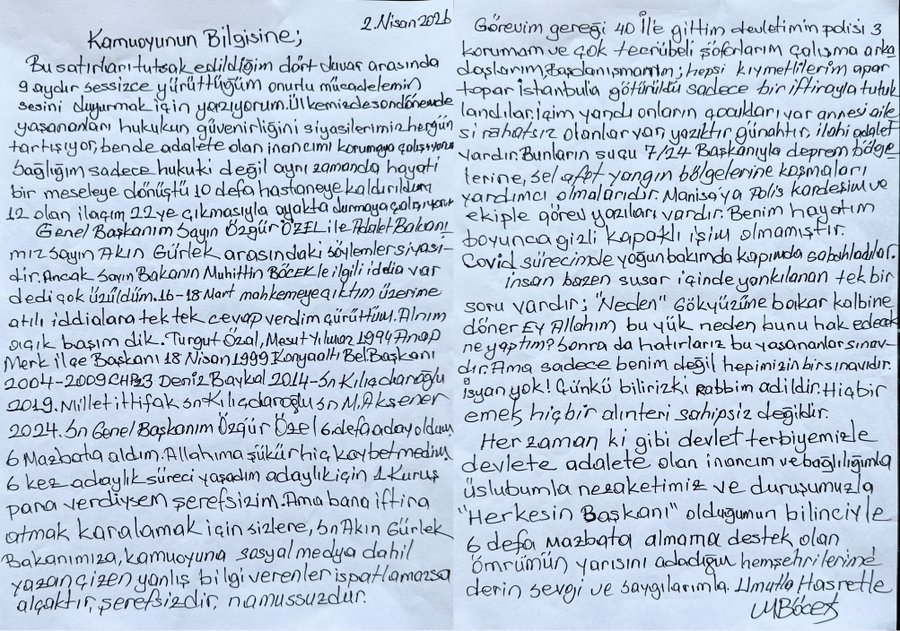 2.Nisan 2026
Kamuoyunun Bilgisine;
Bu satırları tutsak edildiğim dört duvar arasında
9 aydır sessizce yürüttüğüm onurlu mücadelemin
sesini duyurmak için yazıyorum. Ülkemizde son dönemde
yaşananları hukukun güvenirliğini siyasilerimiz hergün
tartışıyor, bende adalete olan inancımı korumaya çalışıyorum
Sağlığım sadece hukuki değil aynı zamanda hayati
bir meseleye dönüştü 10 defa hastaneye kaldırıldım
12 olan ilacım 22 ye çıkmasıyla ayakta durmaya çalışıyorum
Genel Başkanım Sayın Özgür ÖZEL ile Adalet Bakanı
mız Sayın Akın Gürlek arasındaki söylemler siyasi-
dir. Ancak Sayın Bakanın Muhittin BÖCEK le ilgili iddia var
dedi çok üzüldüm. 16-18 Mart mahkemeye çıktım üzerime
atılı iddialara tek tek cevap verdim çürüttüm. Alnım
açık başım dik. Turgut Özal, Mesut Yılmaz 1994 Anap
Merk ilçe Başkanı 18 Nisan 1999 Konyaaltı Bel Başkanı
2004-2009 CHP Deniz Baykal 2014-Sn Kılıçdaroğlu
2019. Millet ittifak Sn Kılıçdaroğlu Sn M.Akşener
2024. Sn Genel Başkanım Özgür Özel 6.defa aday oldum
6 Mazbata aldım. Allahıma şükür hiç kaybetmedim
6 kez adaylık süreci yaşadım adaylık için 1 Kuruş
para verdiysem şerefsizim. Ama bana iftira
atmak karalamak için sizlere, Sn Akın Gürlek
Bakanımıza, kamuoyuna sosyal medya dahil
yazan çizen yanlış bilgi verenler ispatlamazsa
alçaktır, şerefsizdir, namussuzdur.
Görevim gereği 40 İl'e gittim devletimin polisi 3
korumam ve çok tecrübeli şöforlarım çalışma arka
daşlarım, Başdanışmanım; hepsi kıymetlilerim apar
topar İstanbula götürüldü sadece bir iftirayla tutuk
landılar. içim yandı onların çocukları var annesi aile
si rahatsız olanlar var, yazıktır, günahtır, ilahi adalet
vardır. Bunların suçu 7/24 Başkanıyla deprem bölge
lerine, sel afet yangın bölgelerine koşmaları
yardımcı olmalarıdır. Manisa'ya Polis kardeşim ve
ekiple görev yazıları vardır. Benim hayatım
boyunca gizli kapaklı işim olmamıştır.
Covid sürecinde yoğun bakımda kapımda sabahladılar.
insan bazen susar içinde yankılanan tek bir
soru vardır; "Neden" Gökyüzüne bakar kalbine
döner Ey Allahım bu yük neden bunu hak edecek
ne yaptım? Sonra da hatırlarız bu yaşananlar sınav-
dır. Ama sadece benim değil hepimizin bir sınavıdır.
isyan yok! Çünkü biliriz ki Rabbim adildir. Hiçbir
emek hiçbir alınteri sahipsiz değildir.
Her zaman ki gibi devlet terbiyemizle
devlete adalete olan inancım ve bağlılığımla
üslubumla nezaketimiz ve duruşumuzla
"Herkesin Başkanı" olduğumun bilinciyle
6 defa Mazbata almama destek olan
ömrümün yarısını adadığım hemşehrilerime
derin sevgi ve saygılarımla. Umutla Hasretle
MBöcek